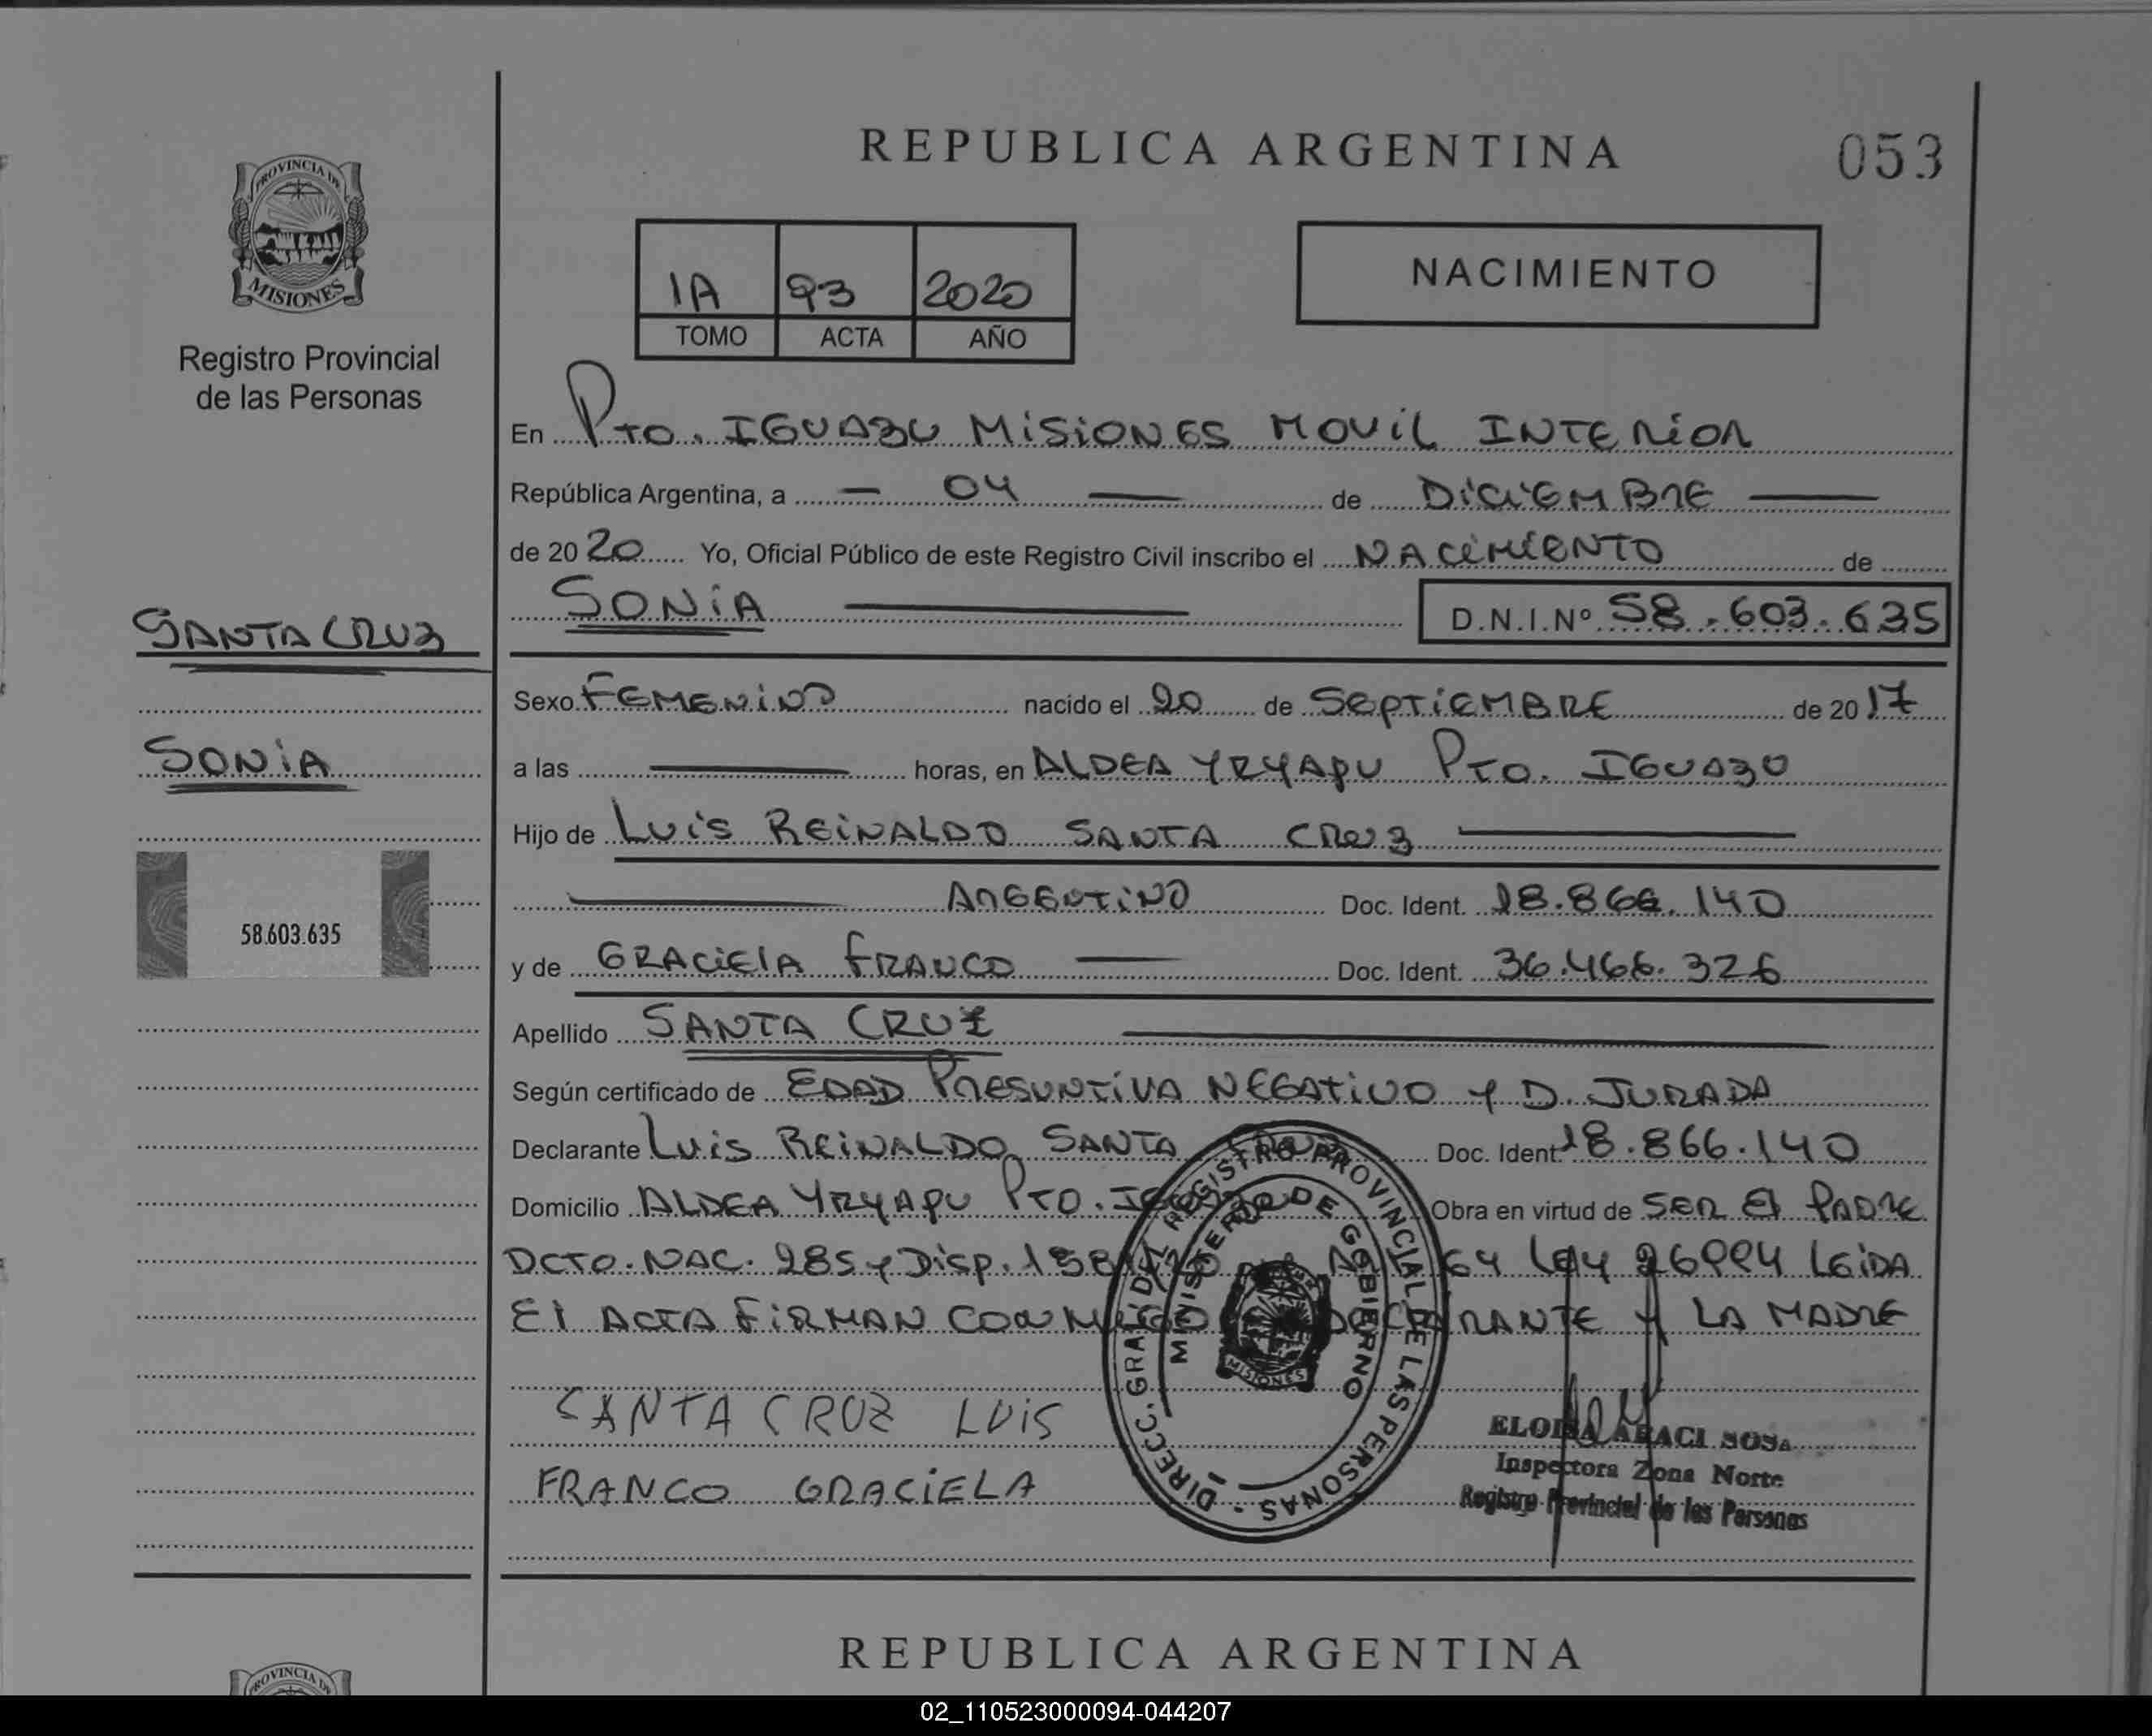 REPUBLICA ARGENTINA
053
PROVINCIA DE
MISIONES
Registro Provincial
de las Personas
1A 93 2020
TOMO ACTA AÑO
NACIMIENTO
En Pto. IGUAZU MISIONES MOVIL INTERIOR
República Argentina, a — 04 — de DICIEMBRE —
de 2020 Yo, Oficial Público de este Registro Civil inscribo el NACIMIENTO de
SONIA — D.N.I.Nº 58.603.635
SANTA CRUZ
Sexo FEMENINO nacido el 20 de SEPTIEMBRE de 2017
SONIA
a las — horas, en ALDEA YRYAPU Pto. IGUAZU
Hijo de LUIS REINALDO SANTA CRUZ —
— ARGENTINO Doc. Ident. 18.866.140
58.603.635
y de GRACIELA FRANCO — Doc. Ident. 36.466.326
Apellido SANTA CRUZ —
Según certificado de EDAD PRESUNTIVA NEGATIVO Y D. JURADA
Declarante LUIS REINALDO SANTA CRUZ Doc. Ident. 18.866.140
Domicilio ALDEA YRYAPU PTO. IGUAZU Obra en virtud de SER El PADRE
DCTO. NAC. 285 y DISP. 64 LEY 26994 LEIDA
El ACTA FIRMAN CONMIGO DECLARANTE Y LA MADRE
SANTA CRUZ LUIS
FRANCO GRACIELA
DIRECC. GRAL. DEL REGISTRO PROVINCIAL DE LAS PERSONAS -
MINISTERIO DE GOBIERNO
MISIONES
ELOISA ARACI SOSA
Inspectora Zona Norte
Registro Provincial de las Personas
REPUBLICA ARGENTINA
PROVINCIA DE
02_110523000094-044207